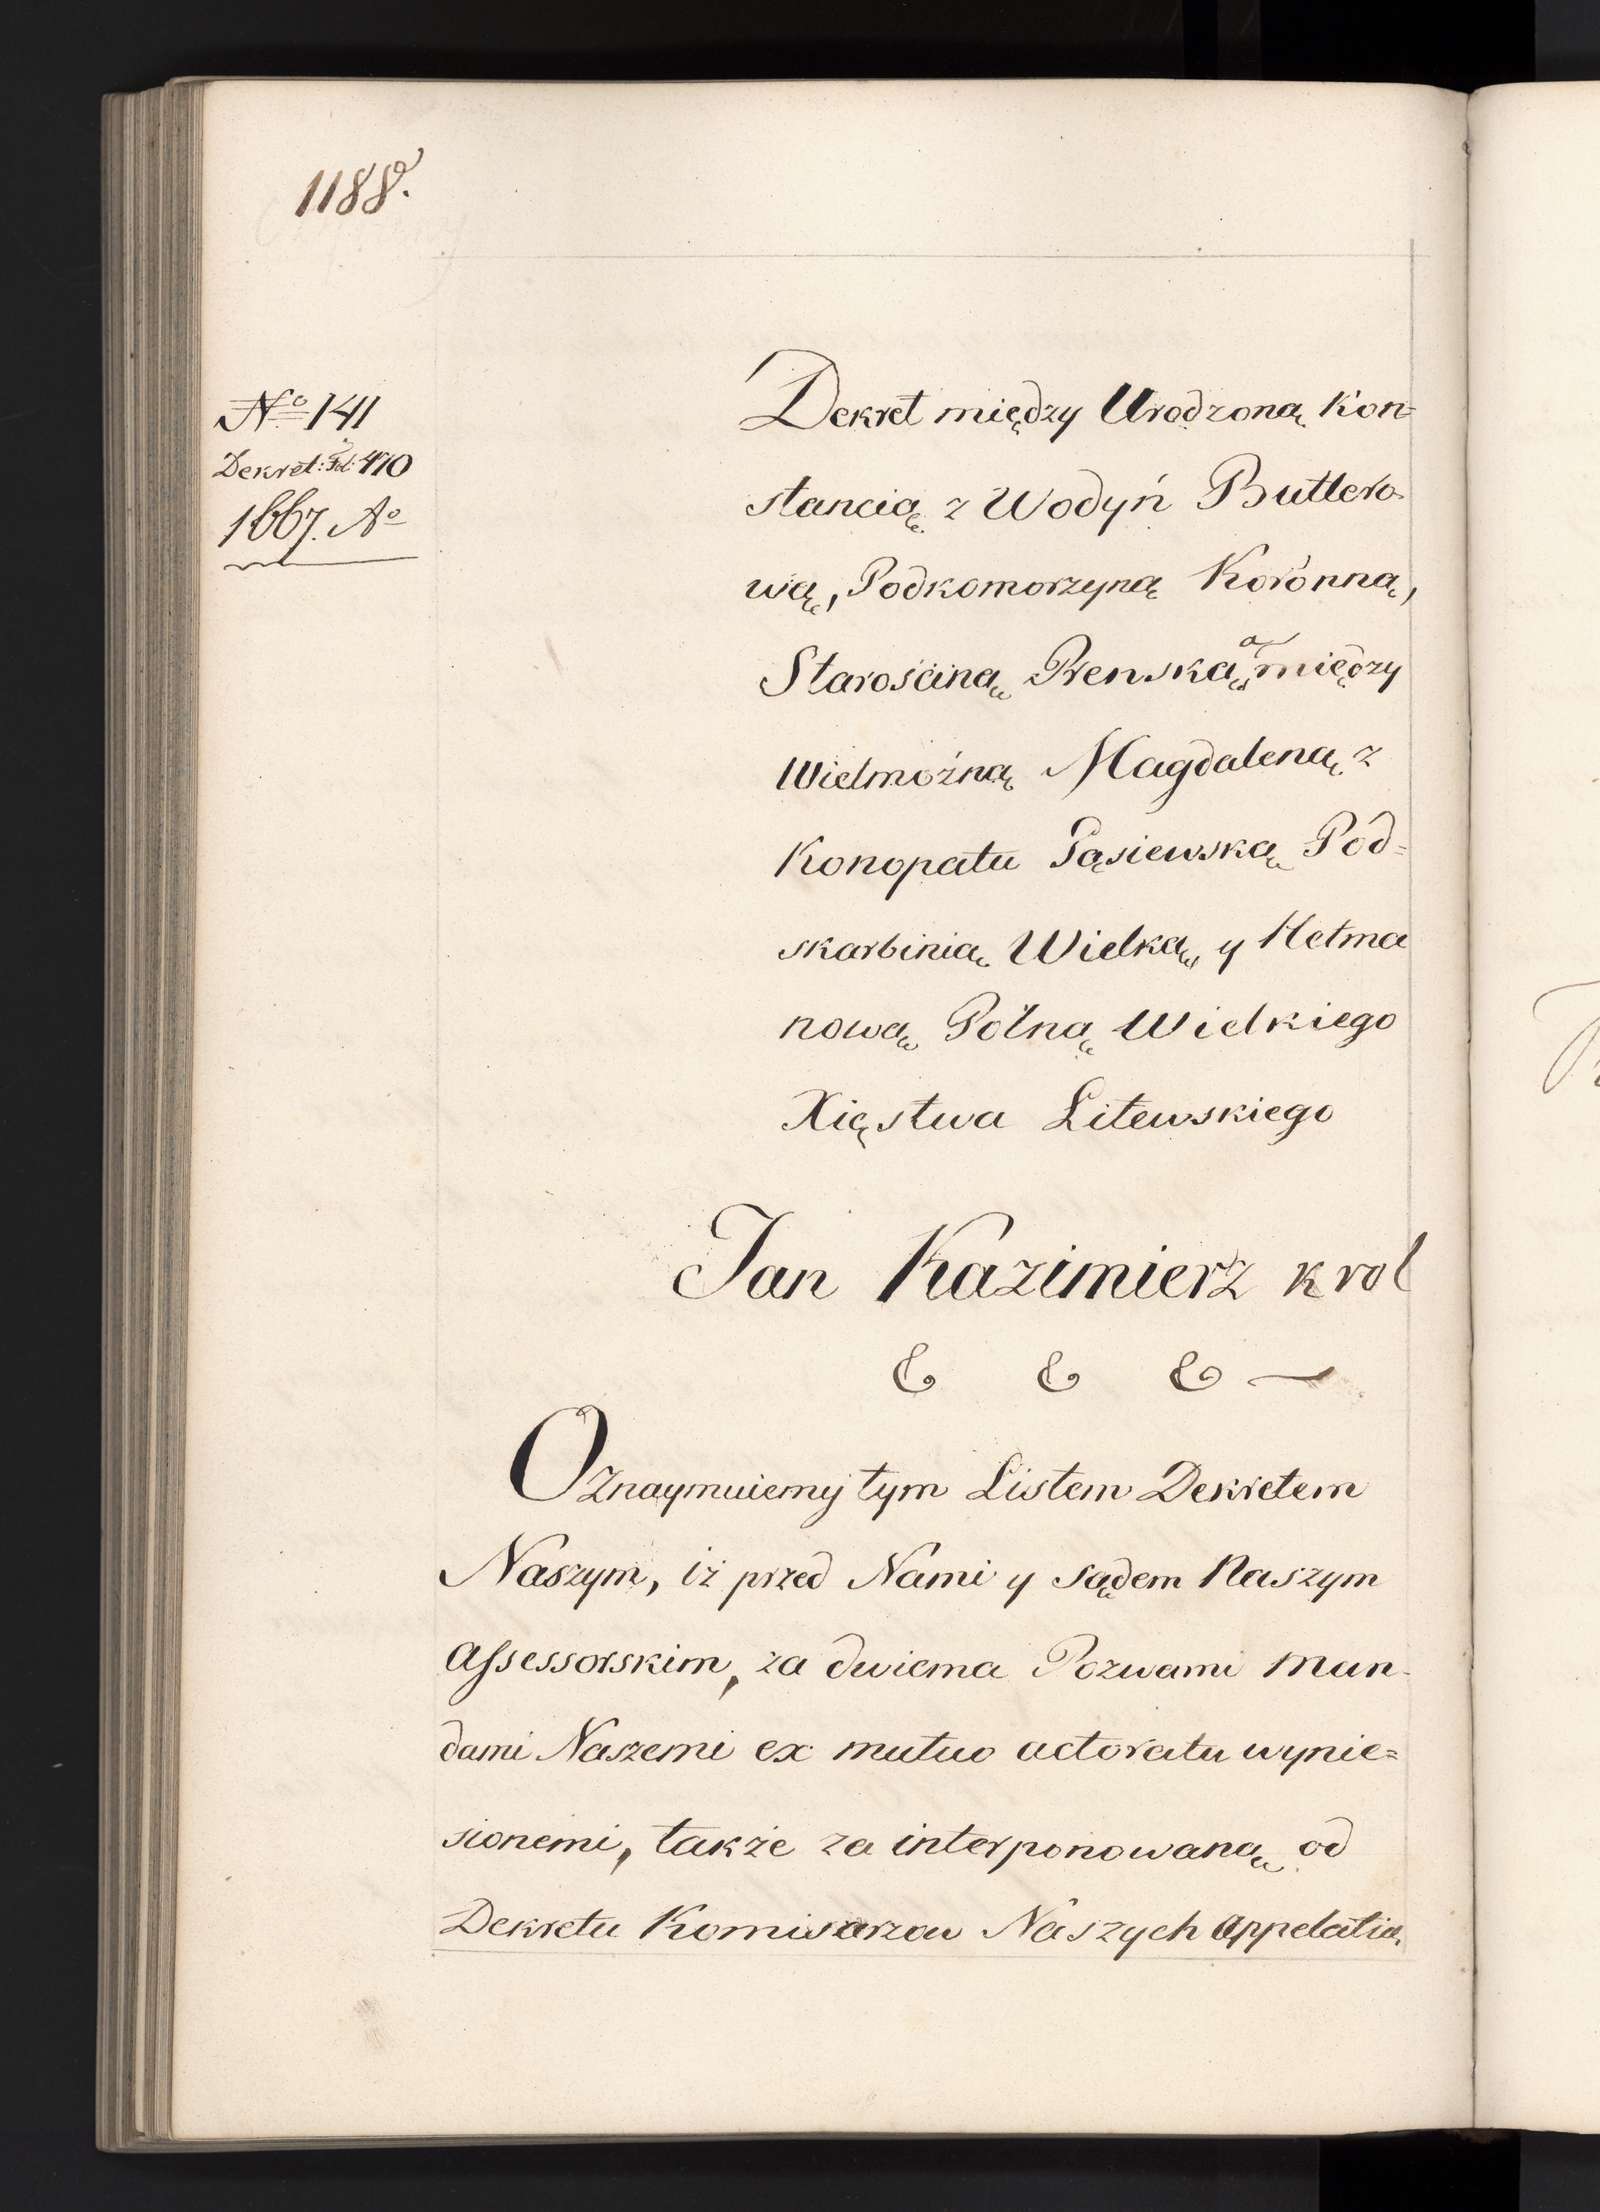 1188.
No 141
Dekret: Fol: 470
1667. Ao
Dekret między Urodzoną Kon=
stancią z Wodyń Buttero-
wą, Podkomorzyną Koronną,
Starościną Prenską, a między
Wielmożną Magdaleną z
Konopatu Gąsiewską Pod=
skarbinią Wielką, y Hetma
nową Polną Wielkiego
Xięstwa Litewskiego
Jan Kazimierz krol
& & & —
Oznaymuiemy tym Listem Dekretem
Naszym, iż przed Nami y sądem Naszym
Assessorskim, za dwiema Pozwami Man-
dami Naszemi ex mutuo actoratu wynie=
sionemi, także za interponowaną od
Dekretu Komisarzow Naszych Appelatią,